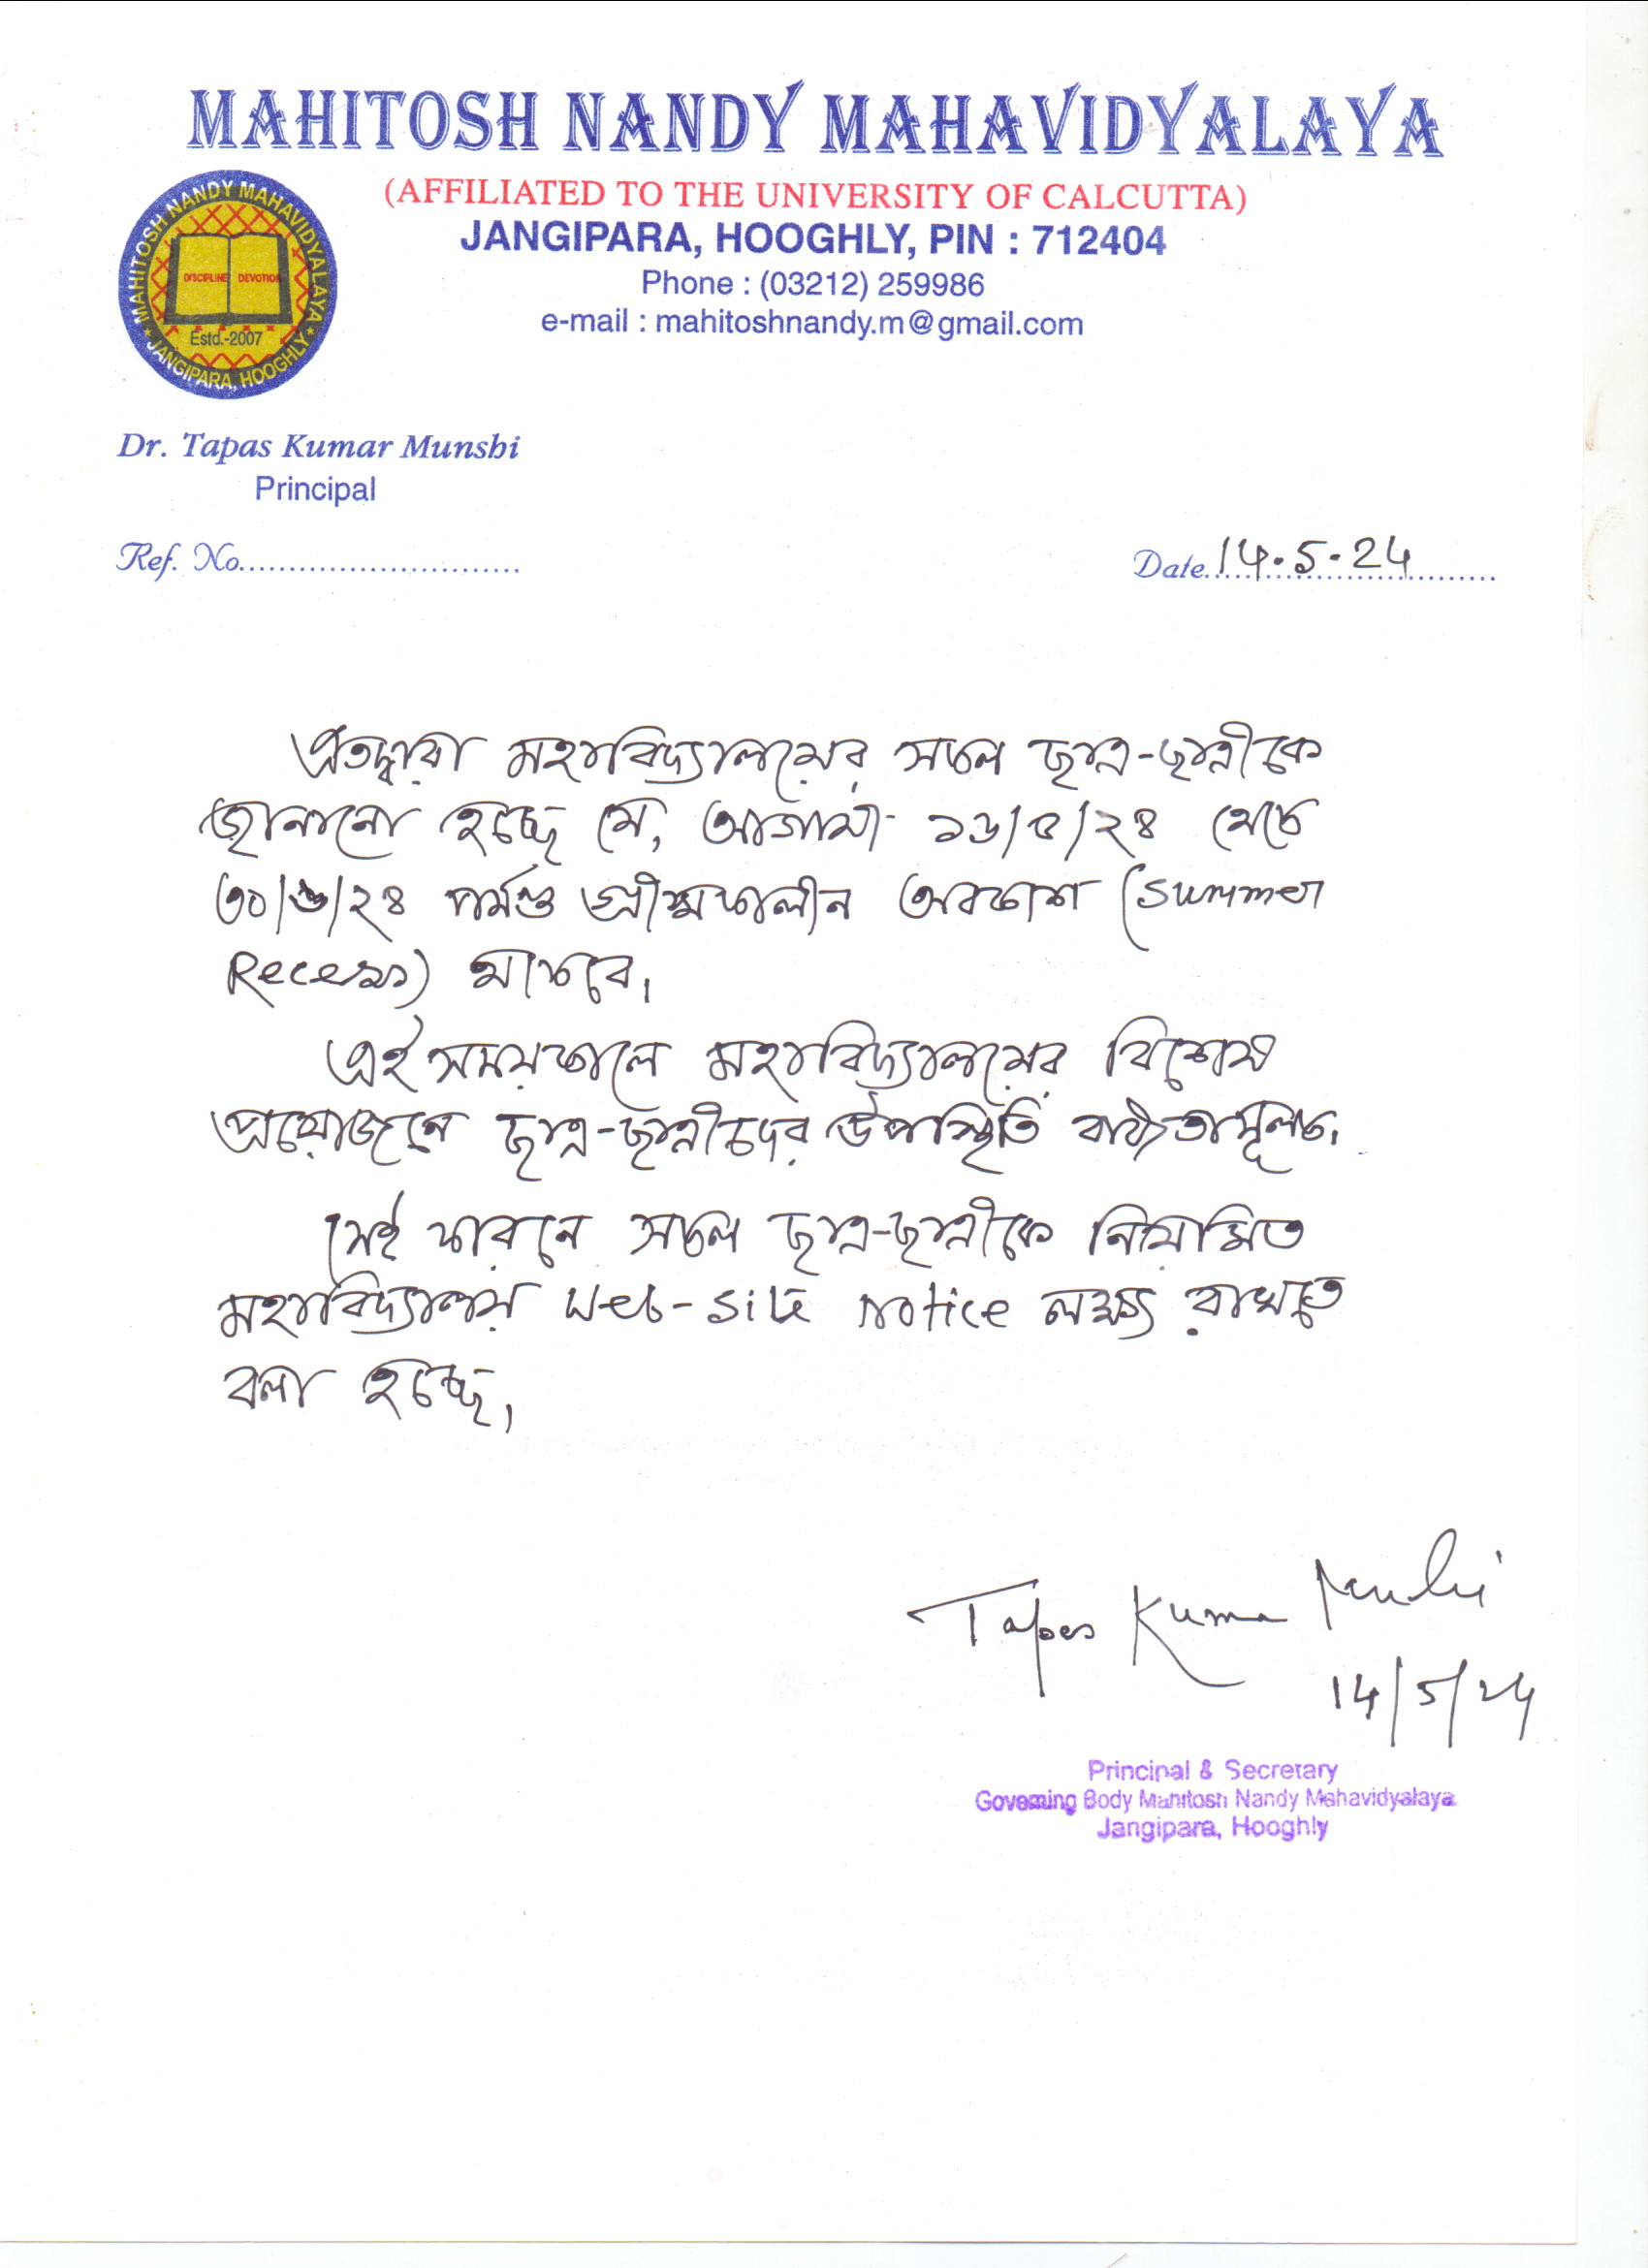 MAHITOSH NANDY MAHAVIDYALAYA
(AFFILIATED TO THE UNIVERSITY OF CALCUTTA)
JANGIPARA, HOOGHLY, PIN : 712404
Phone : (03212) 259986
e-mail : mahitoshnandy.m@gmail.com
MAHITOSH NANDY MAHAVIDYALAYA
DISCIPLINE DEVOTION
Estd.-2007
JANGIPARA, HOOGHLY
Dr. Tapas Kumar Munshi
Principal
Ref. No............................
Date..14.5.24
এতদ্বারা মহাবিদ্যালয়ের সকল ছাত্র-ছাত্রীকে
জানানো হচ্ছে যে, আগামী ১৬/৫/২৪ থেকে
৩০/৬/২৪ পর্যন্ত গ্রীষ্মকালীন অবকাশ (Summer
Recess) থাকবে।
এই সময়কালে মহাবিদ্যালয়ের বিশেষ
প্রয়োজনে ছাত্র-ছাত্রীদের উপস্থিতি বাধ্যতামূলক।
সেই কারনে সকল ছাত্র-ছাত্রীকে নিয়মিত
মহাবিদ্যালয় Web-site notice লক্ষ্য রাখতে
বলা হচ্ছে।
Tapas Kumar Munshi
14/5/24
Principal & Secretary
Governing Body Mahitosh Nandy Mahavidyalaya
Jangipara, Hooghly